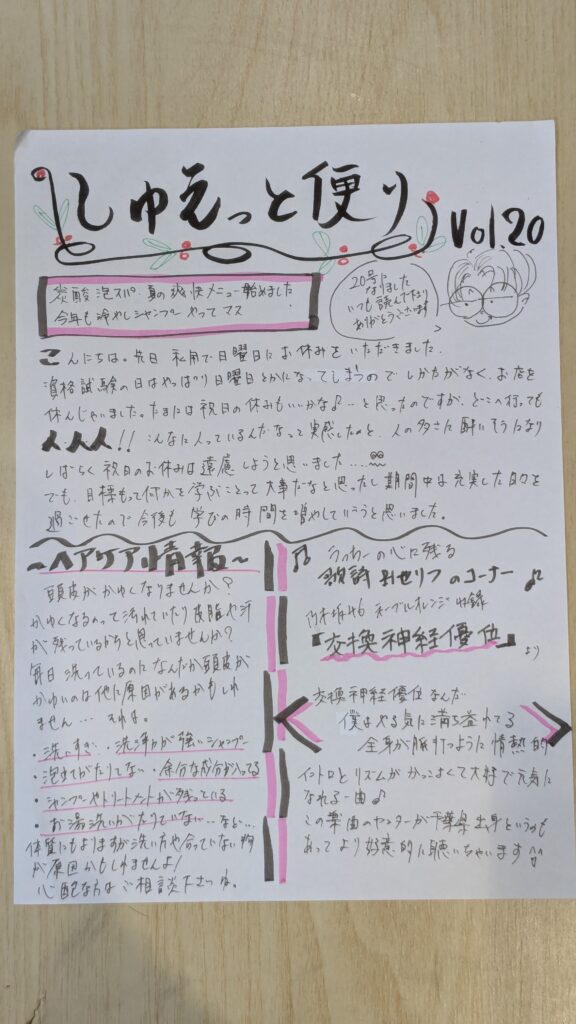 しゅえっと便り Vol.20
炭酸泡スパ・夏の爽快メニュー始めました
今年も冷やしシャンプーやってマス
20号に
なりました
いつも読んで下さり
ありがとうございます
こんにちは。先日 私用で日曜日にお休みをいただきました。
資格試験の日はやっぱり日曜日とかになってしまうのでしかたがなく、お店を
休んじゃいました。たまには祝日の休みもいいかな♪…と思ったのですが、どこへ行っても
人人人!! こんなに人っているんだなって実感したのと、人の多さに酔いそうになり
しばらく祝日のお休みは遠慮しようと思いました…
でも、目標もって何かを学ぶことって大事だなと思ったし期間中は充実した日々を
過ごせたので今後も 学びの時間を増やしていこうと思いました。
~ヘアケア情報~
頭皮がかゆくなりませんか?
かゆくなるのって汚れていたり皮脂や汗
が残っているからと思っていませんか?
毎日洗っているのになんだか頭皮が
かゆいのは他に原因があるかもしれ
ません… それは。
・洗いすぎ ・洗浄力が強いシャンプー
・泡立てがたりてない ・余分な成分が入ってる
・シャンプーやトリートメントが残っている
・お湯洗いがたりていない… など…
体質にもよりますが洗い方や合っていない物
が原因かもしれませんよ!
心配な方はご相談ださいね。
♫ うっちーの心に残る
歌詩 おセリフのコーナー ♫
乃木坂46 ネーブルオレンジ 収録
『交換神経優位』より
交換神経優位なんだ
僕はやる気に満ち溢れてる
全身が脈打つように情熱的
イントロとリズムがかっこよくて大好で元気に
なれる一曲♪
この楽曲のセンターが千葉県出身というのも
あってより好意的に聴いちゃいます^^